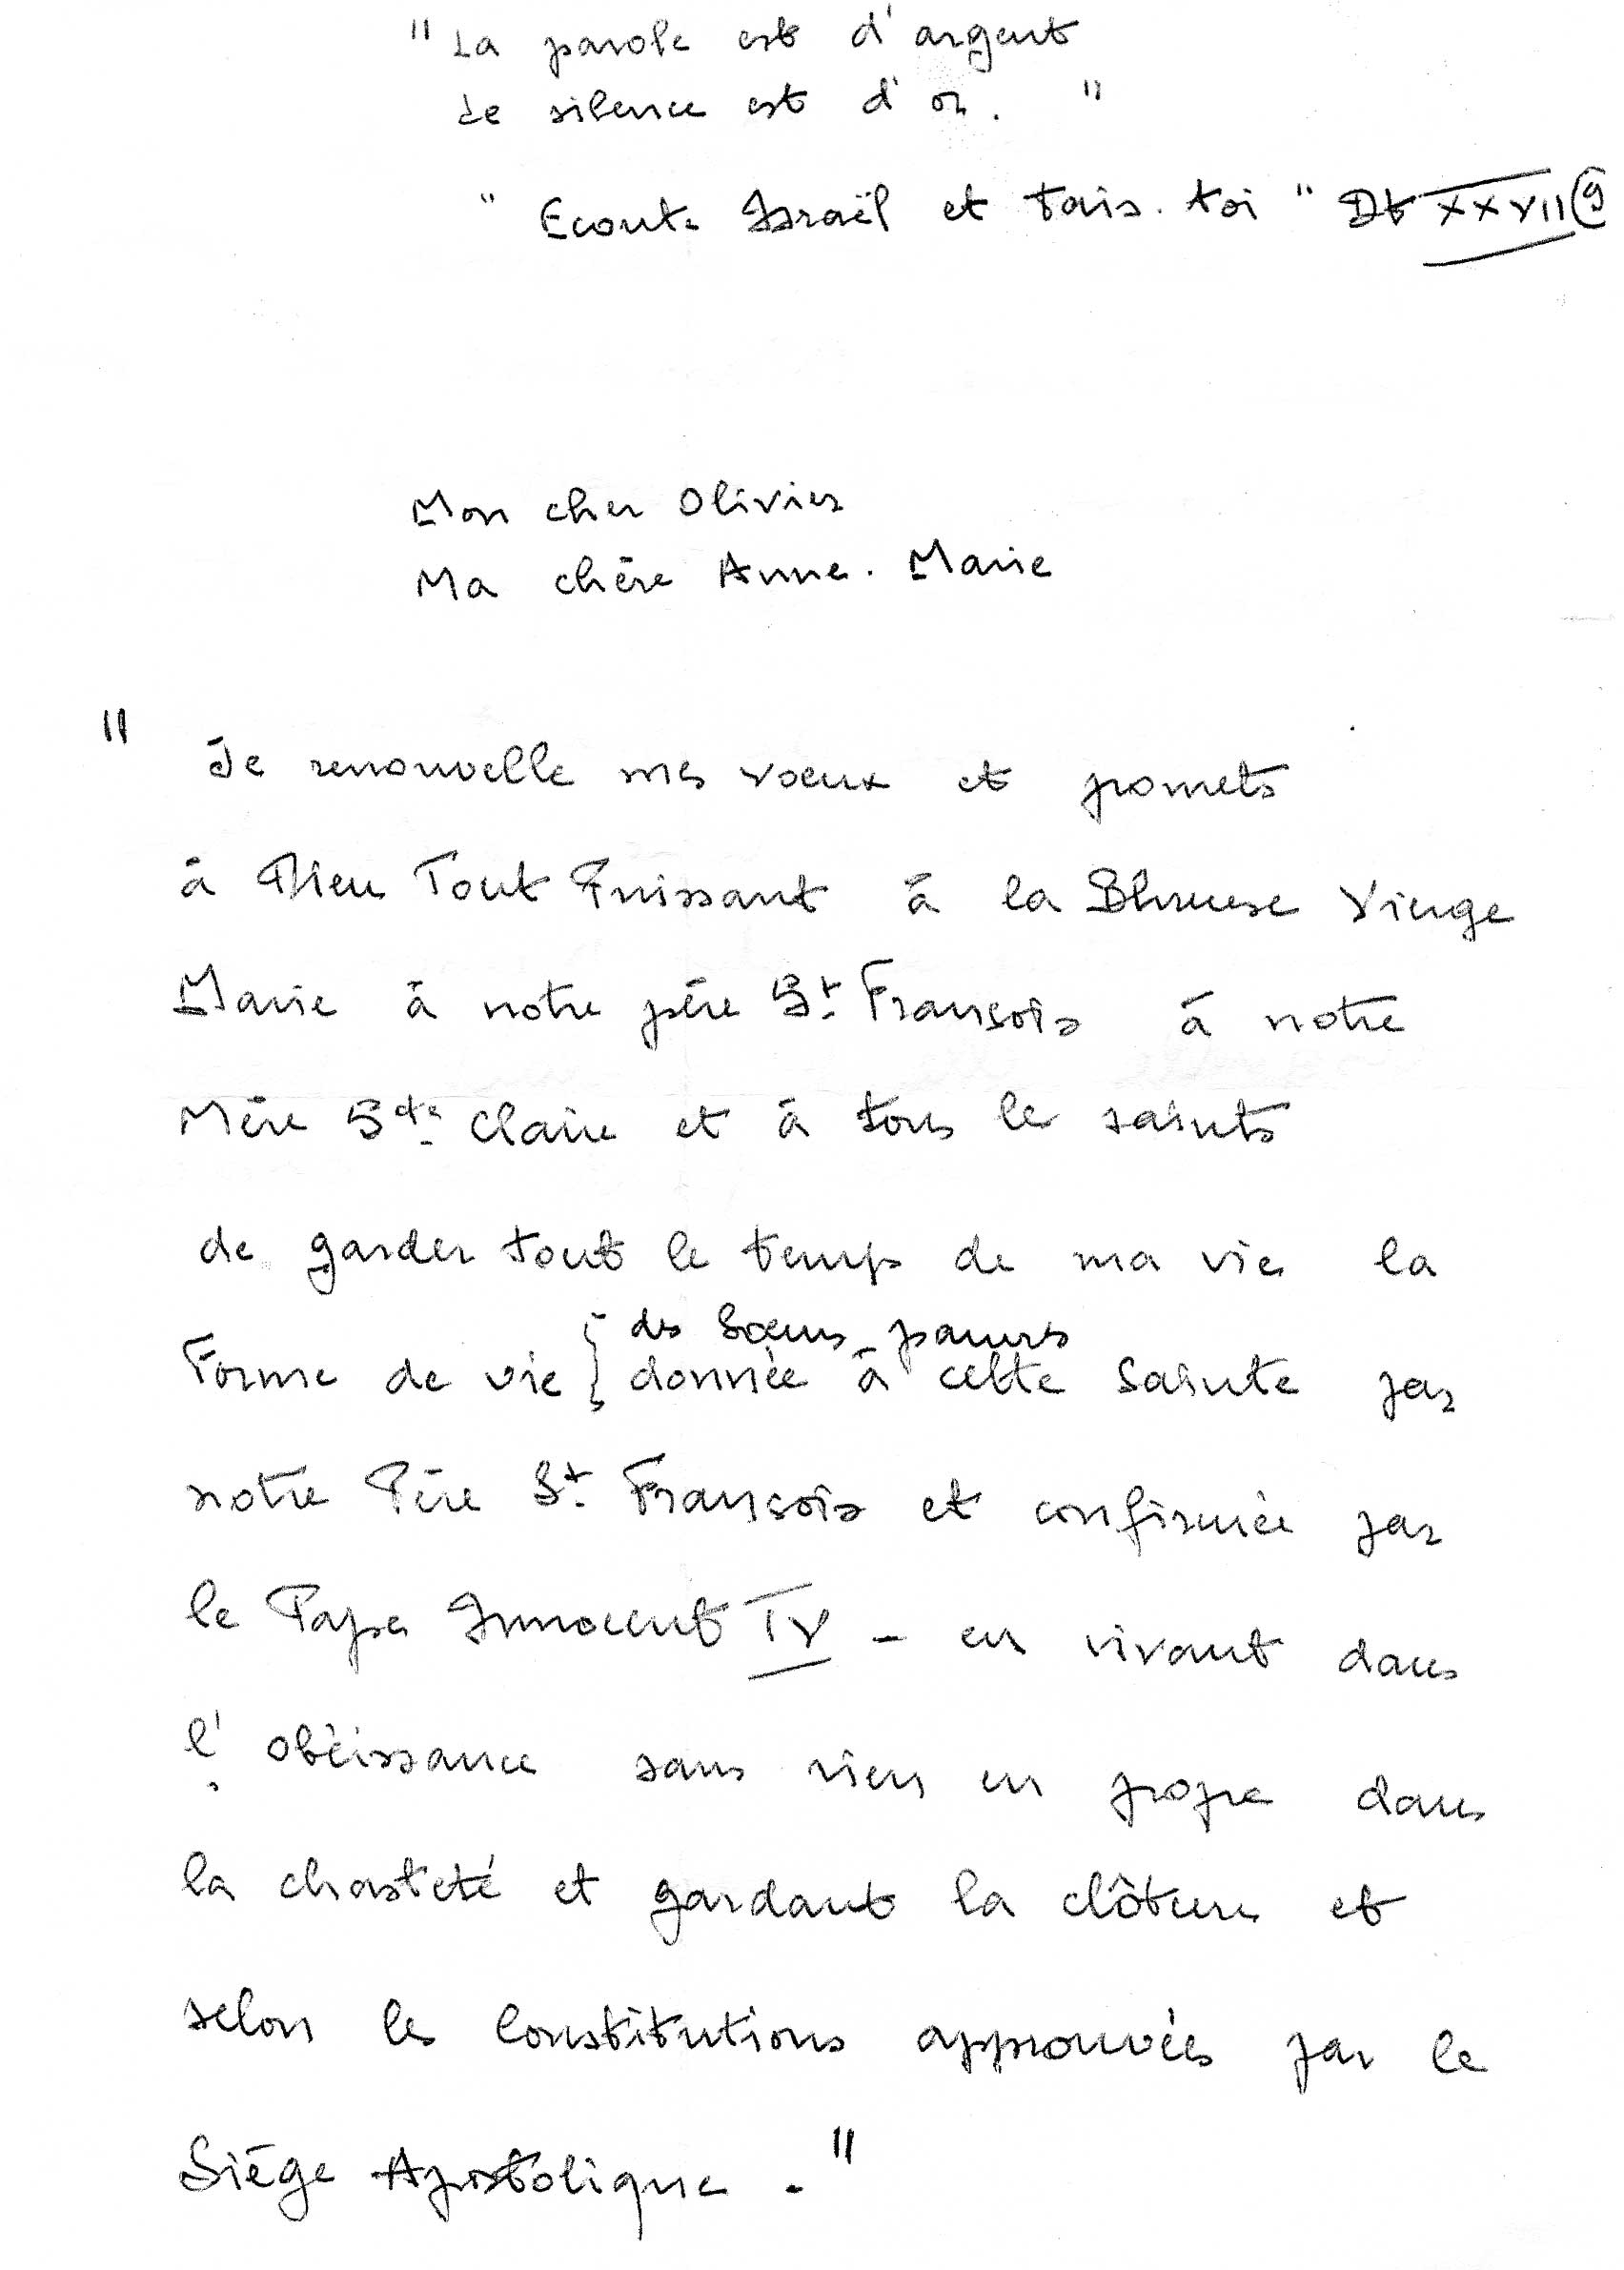 " La parole est d'argent
Le silence est d'or. "
" Ecoute Israël et tais-toi " Dt XXVII 9
Mon cher Olivier
Ma chère Anne-Marie
" Je renouvelle mes voeux et promets
à Dieu Tout Puissant à la Bhreuse Vierge
Marie à notre père St François à notre
Mère Ste Claire et à tous les saints
de garder tout le temps de ma vie la
des Soeurs pauvres
Forme de vie } donnée à cette Sainte par
notre Père St François et confirmée par
le Pape Innocent IV - en vivant dans
l'obéissance sans rien en propre dans
la chasteté et gardant la clôture et
selon les Constitutions approuvées par le
Siège Apostolique. "